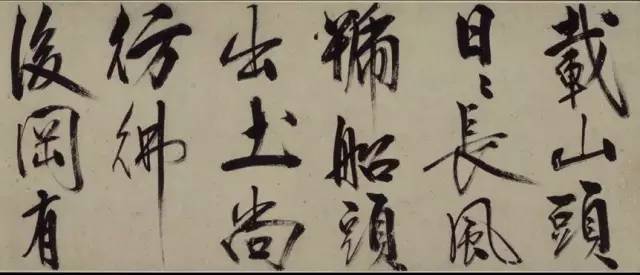 載山頭
日〻長風
號船頭
出土尚
彷彿
後岡有